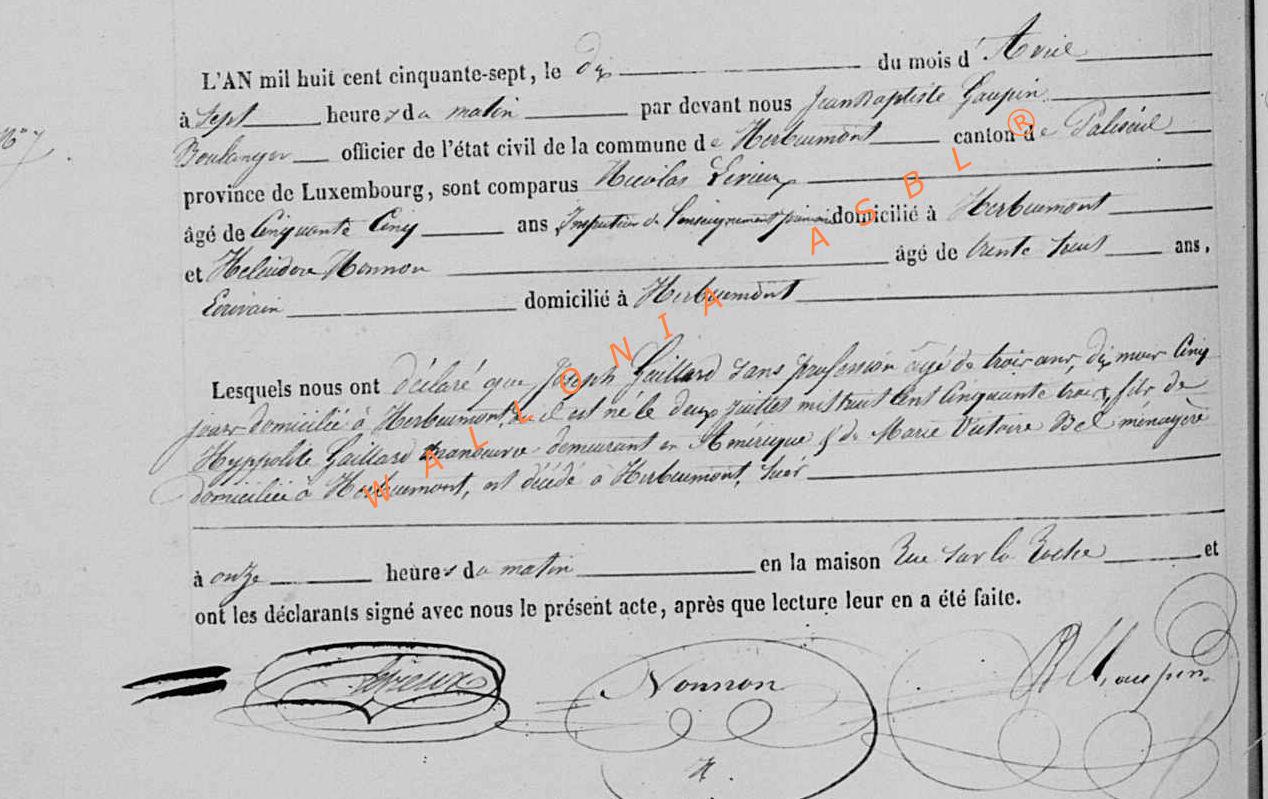 L'AN mil huit cent cinquante-sept, le dix du mois d'Avril
à sept heures du matin par devant nous Jean Baptiste Gaupin
No 7.
Boulanger officier de l'état civil de la commune de Herbeumont canton de Paliseul
province de Luxembourg, sont comparus Nicolas Lerieux
âgé de Cinquante Cinq ans, Inspecteur de l'enseignement primaire domicilié à Herbeumont
et Heliodore Nonnon âgé de trente huit ans,
Ecrivain domicilié à Herbeumont
Lesquels nous ont déclaré que Joseph Gaillard sans profession âgé de trois ans, dix mois Cinq
jours domicilié à Herbeumont, où il est né le deux juillet mil huit cent cinquante trois, fils de
Hyppolite Gaillard manoeuvre demeurant en Amérique & de Marie Victoire Bel ménagère
domiciliée à Herbeumont, est décédé à Herbeumont, hier
à onze heures du matin en la maison Rue sur la Roche et
ont les déclarants signé avec nous le présent acte, après que lecture leur en a été faite.
Lerieux Nonnon Gaupin
H.
WALLONIA ASBL ®